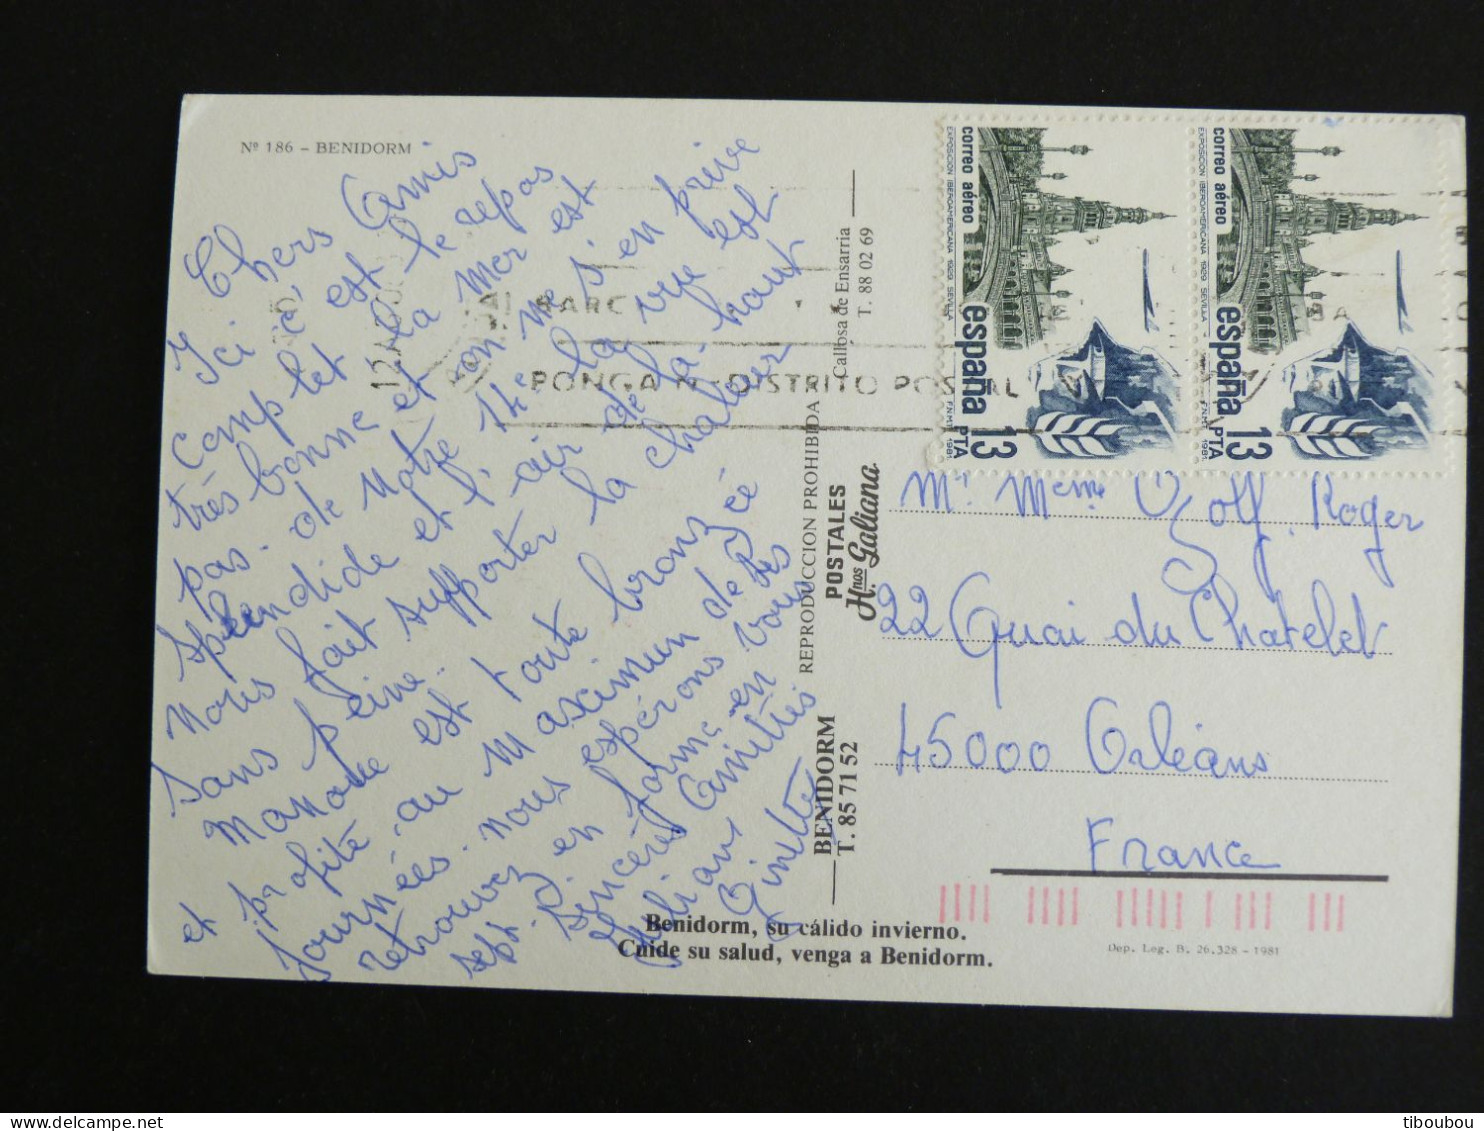 Nº 186 - BENIDORM
Chers Amis
Ici, c'est le repas
complet. La mer est
très bonne et on ne s'en prive
pas. de notre 14e la vue est
splendide et l'air de là-haut
nous fait supporter la chaleur
sans peine.
est toute bronzée
et profite au maximum de ses
journées. nous espérons vous
retrouver en forme en
sept.
Sincères Amitiés
Ginette
PARC
PONGA Nº DISTRITO POSTAL
Callosa de Ensarria
T. 88 02 69
REPRODUCCION PROHIBIDA
POSTALES
Hnos. Galiana
BENIDORM
T. 85 71 52
Benidorm, su cálido invierno.
Cuide su salud, venga a Benidorm.
correo aéreo
EXPOSICION IBEROAMERICANA 1929 SEVILLA
españa
13 PTA
F.N.M.T. 1981
correo aéreo
EXPOSICION IBEROAMERICANA 1929 SEVILLA
españa
13 PTA
F.N.M.T. 1981
Mr Meme Roger
22 Quai du Chatelet
45000 Orléans
France
Dep. Leg. B. 26.328 - 1981
tiboubou